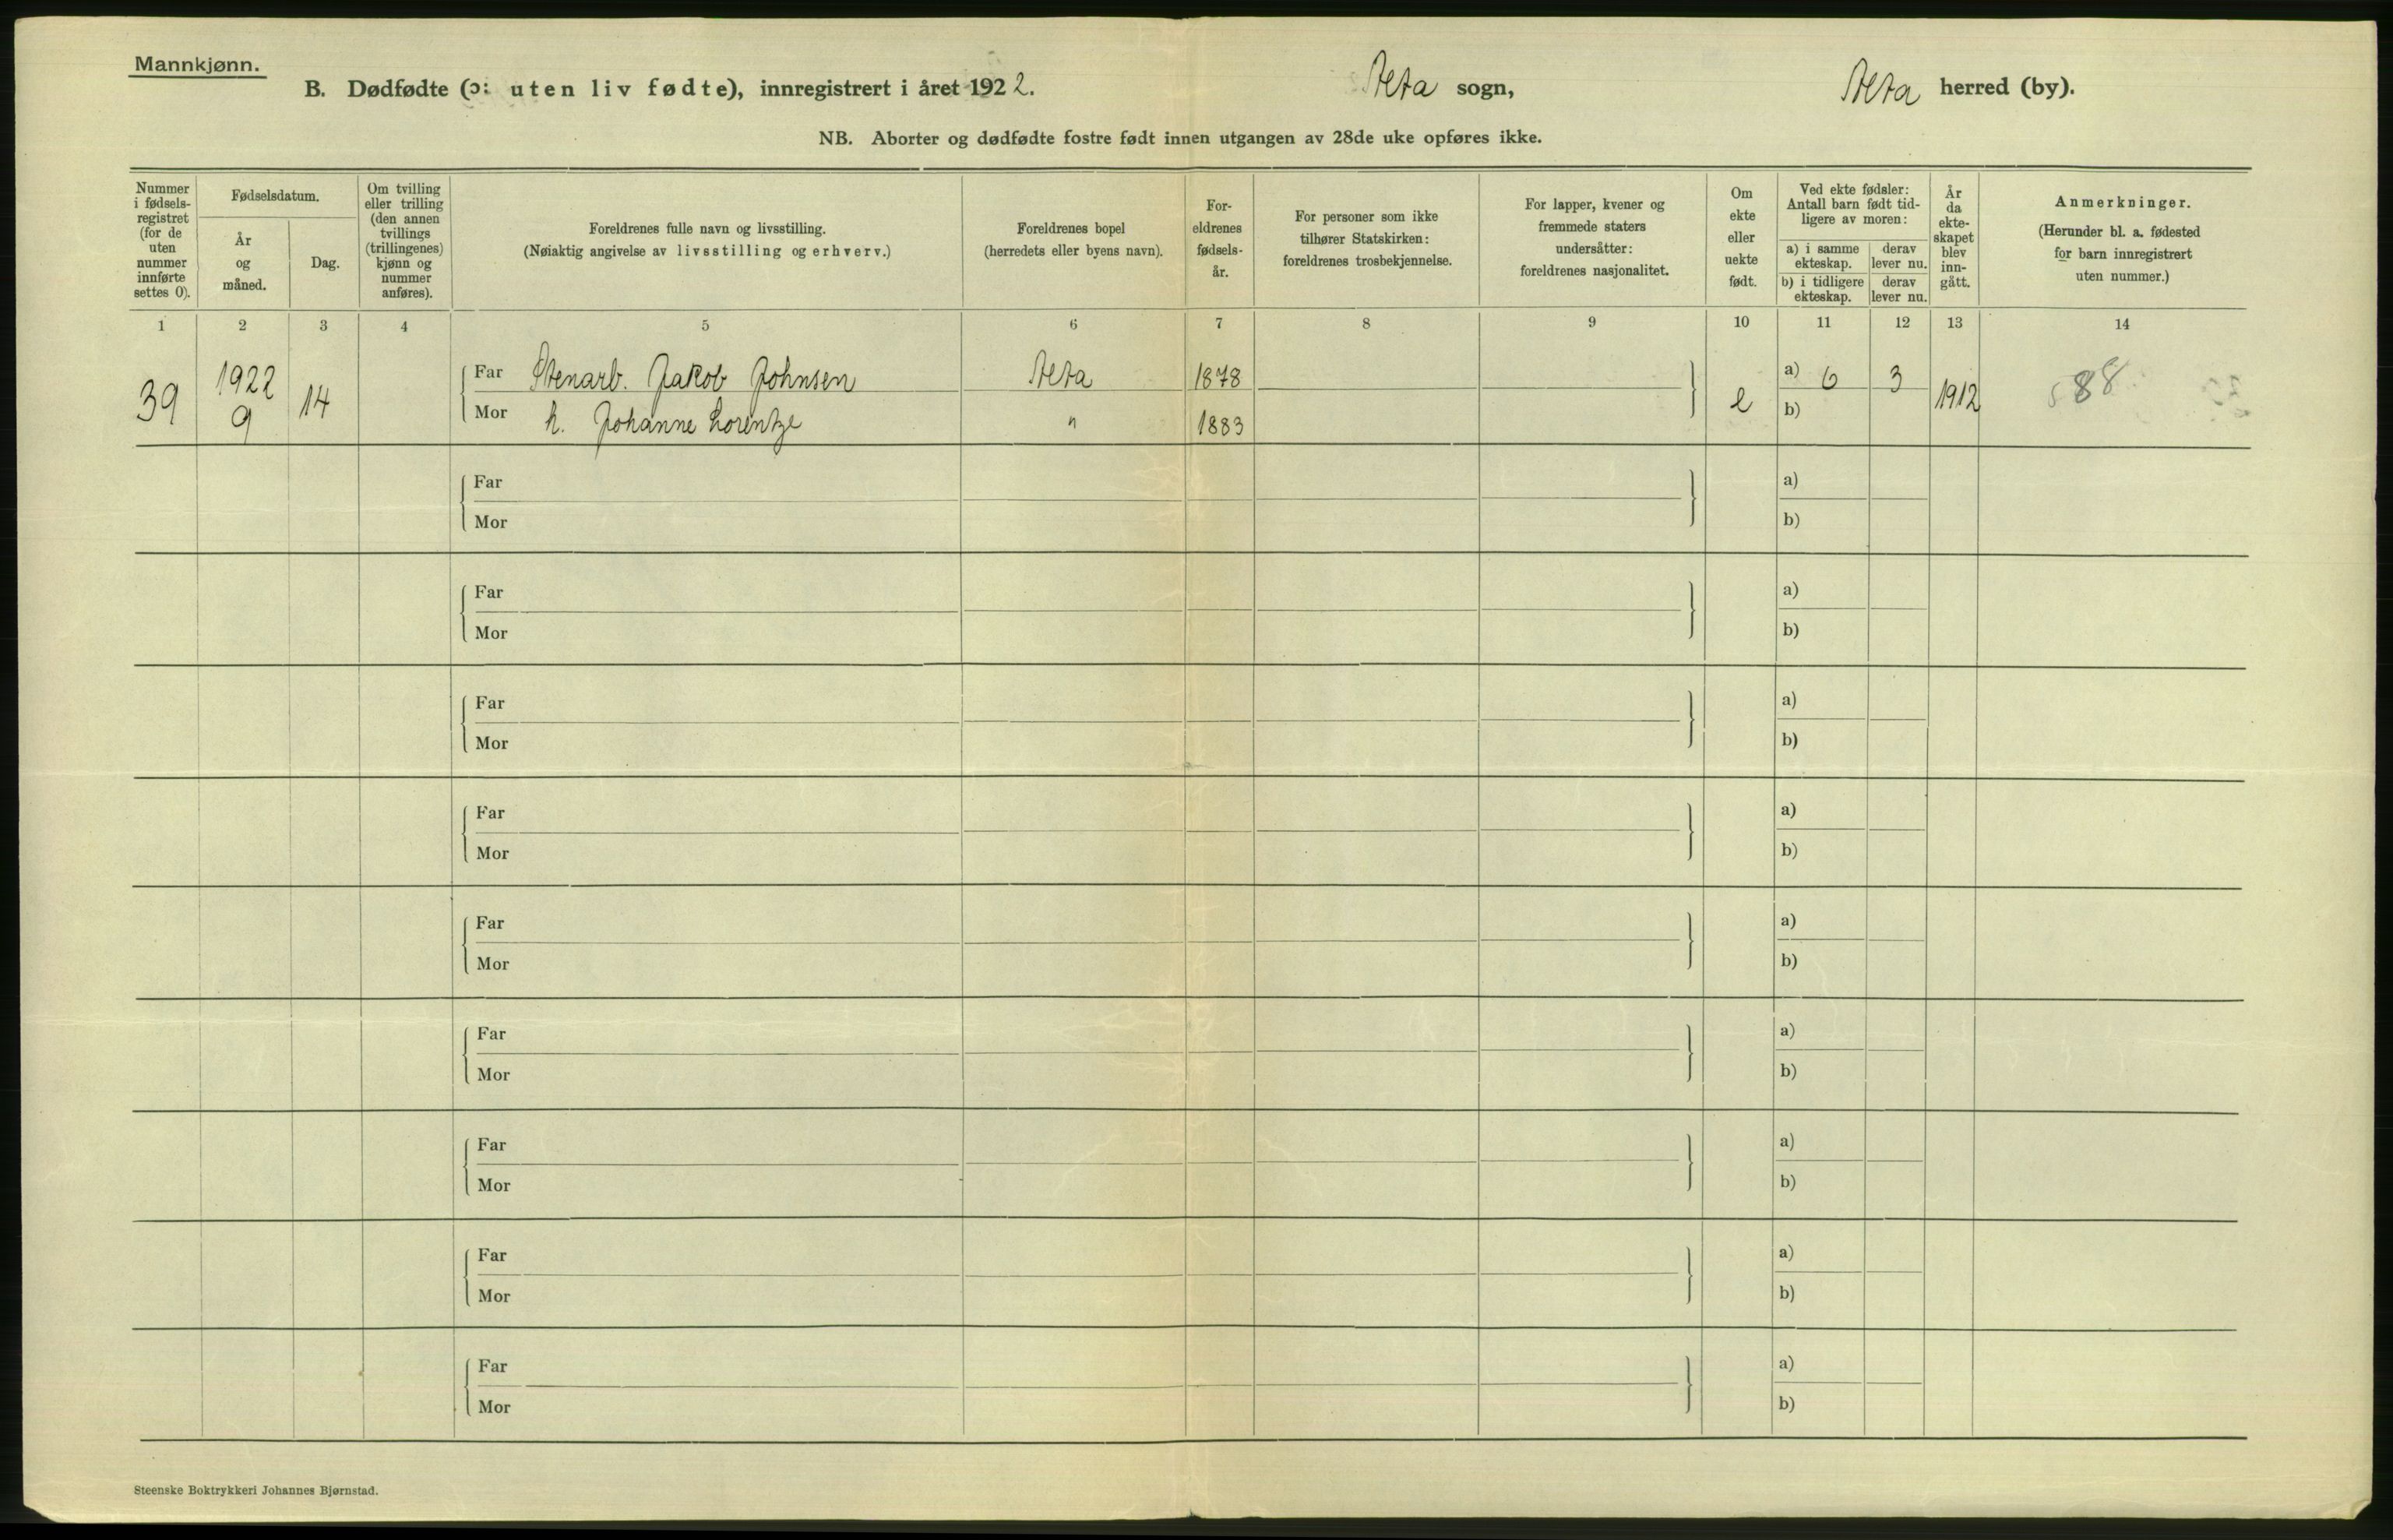 Mannkjønn.
B. Dødfødte (ɔ: uten liv fødte), innregistrert i året 1922. Alta sogn, Alta herred (by).
NB. Aborter og dødfødte fostre født innen utgangen av 28de uke opføres ikke.
Nummer i fødsels-registret (for de uten nummer innførte settes 0).
Fødselsdatum.
År og måned.
Dag.
Om tvilling eller trilling (den annen tvillings (trillingenes) kjønn og nummer anføres).
Foreldrenes fulle navn og livsstilling.
(Nøiaktig angivelse av livsstilling og erhverv.)
Foreldrenes bopel
(herredets eller byens navn).
For-eldrenes fødsels-år.
For personer som ikke tilhører Statskirken: foreldrenes trosbekjennelse.
For lapper, kvener og fremmede staters undersåtter: foreldrenes nasjonalitet.
Om ekte eller uekte født.
Ved ekte fødsler: Antall barn født tid-ligere av moren:
a) i samme ekteskap. derav lever nu.
b) i tidligere ekteskap. derav lever nu.
År da ekte-skapet blev inn-gått.
Anmerkninger.
(Herunder bl. a. fødested for barn innregistrert uten nummer.)
1 2 3 4 5 6 7 8 9 10 11 12 13 14
39 1922 9 14 Far Stenarb. Jakob Johnsen Alta 1878 e a) 6 3 1912 88
Mor h. Johanne Lorentze " 1883 b)
Far a)
Mor b)
Far a)
Mor b)
Far a)
Mor b)
Far a)
Mor b)
Far a)
Mor b)
Far a)
Mor b)
Far a)
Mor b)
Far a)
Mor b)
Far a)
Mor b)
Steenske Boktrykkeri Johannes Bjørnstad.